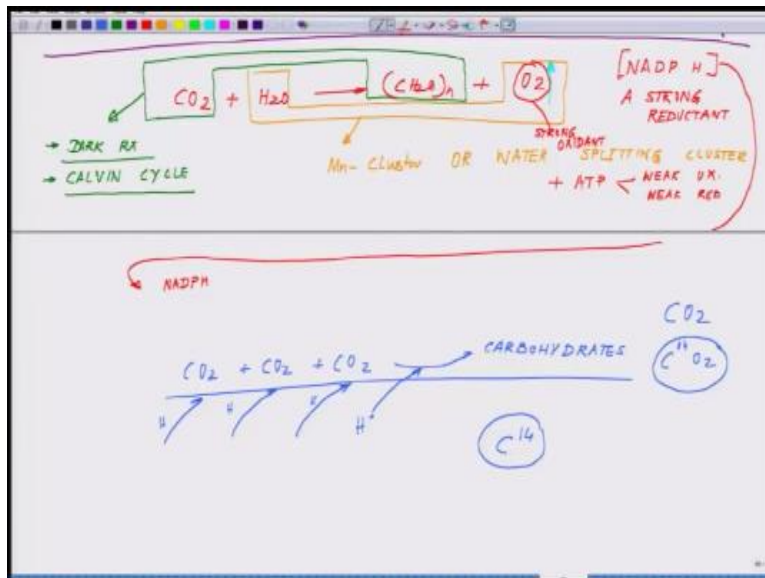 CO2 + H2O → (CH2O)n + O2
[NADP H]
A STRING
REDUCTANT
STRONG
OXIDANT
→ DARK RX
→ CALVIN CYCLE
Mn- Cluster OR WATER SPLITTING CLUSTER
+ ATP < WEAK OX.
WEAK RED
NADPH
CO2
C14O2
CO2 + CO2 + CO2 → CARBOHYDRATES
H H H H
C14